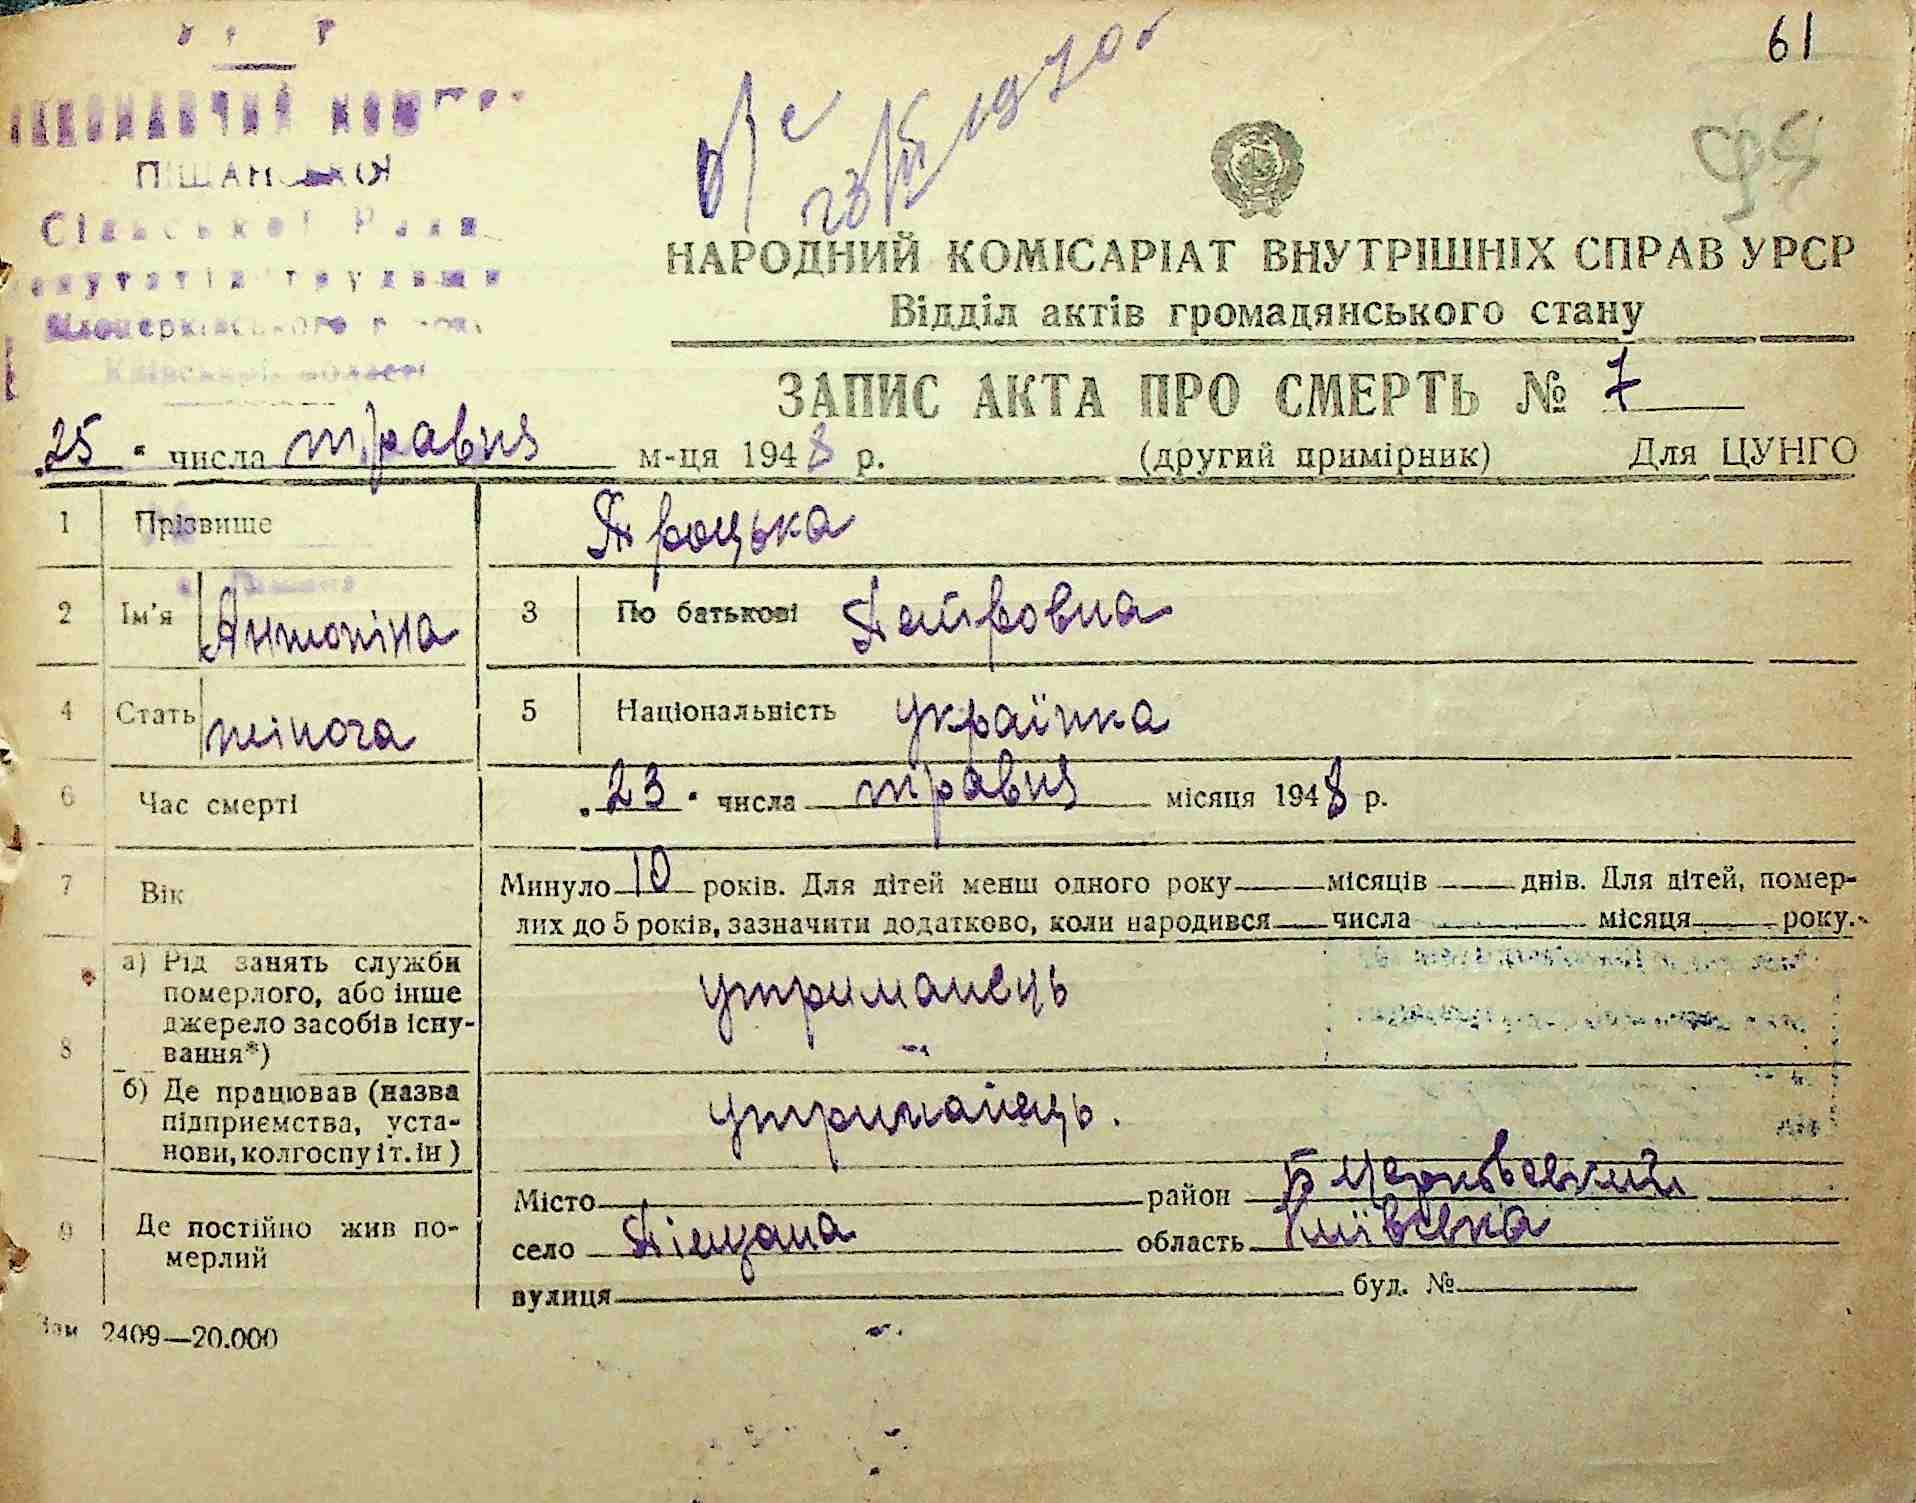 61
ПІЩАНСЬКОЇ
Сільської Ради
Київської області
НАРОДНИЙ КОМІСАРІАТ ВНУТРІШНІХ СПРАВ УРСР
Відділ актів громадянського стану
ЗАПИС АКТА ПРО СМЕРТЬ № 7
25 " числа травня м-ця 1948 р. (другий примірник) Для ЦУНГО
1 Прізвище Троцька
2 Ім'я Антоніна 3 По батькові Петровна
4 Стать жіноча 5 Національність українка
6 Час смерті „23" числа травня місяця 1948 р.
7 Вік Минуло 10 років. Для дітей менш одного року — місяців — днів. Для дітей, помер-
лих до 5 років, зазначити додатково, коли народився — числа — місяця — року.
8 а) Рід занять служби
померлого, або інше
джерело засобів існу-
вання*)
утриманець
б) Де працював (назва
підприємства, уста-
нови, колгоспу і т. ін)
утриманець.
9 Де постійно жив по-
мерлий
Місто район Б Церковський
село Піщана область Київська
вулиця буд. №
Зам 2409—20.000